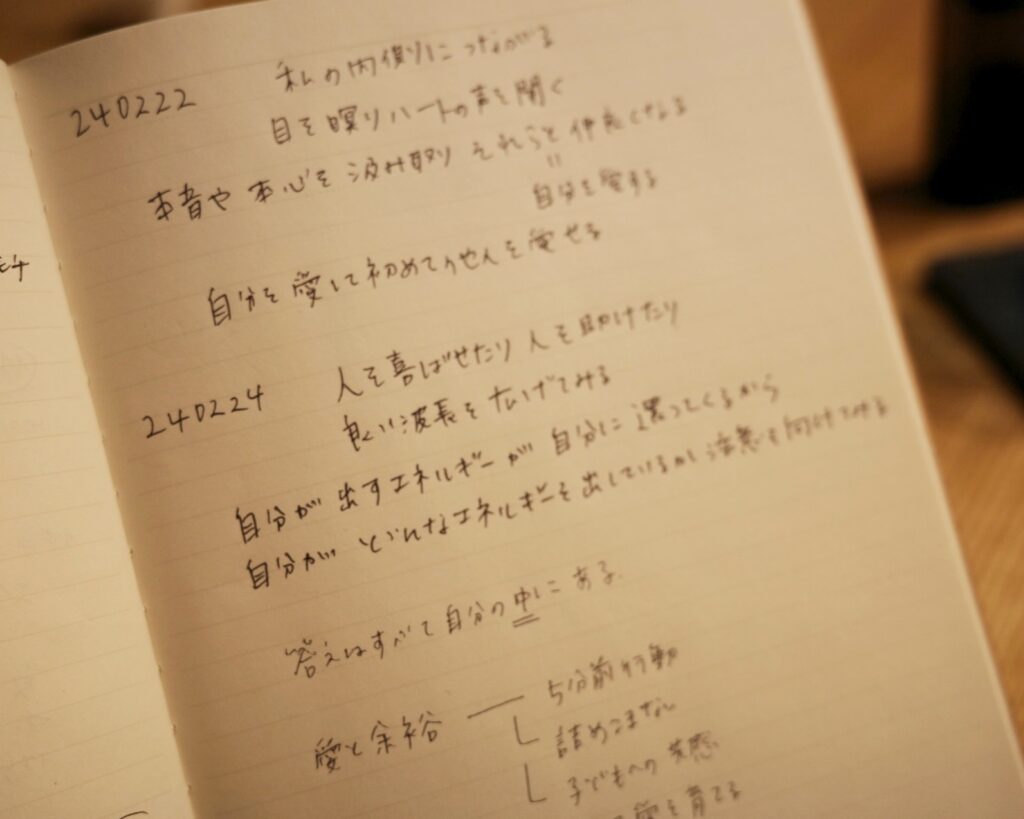 240222 私の内側につながる
目を瞑りハートの声を聞く
本音や本心を汲み取り それらと仲良くなる
〃
自分を愛する
自分を愛して初めて他人を愛せる
240224 人を喜ばせたり 人を助けたり
良い波長を広げてみる
自分が出すエネルギーが自分に還ってくるから
自分がどんなエネルギーを出しているかし注意を向けてみる
答えはすべて自分の中にある
愛と余裕 — 5分前行動
詰めこまない
子どもへの共感
愛を育てる